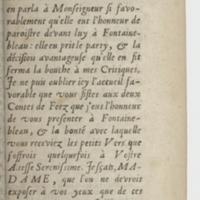 en parla à Monseigneur si favo-
rablement qu'elle eut l'honneur de
paroistre devant luy à Fontaine-
bleau : elle eu prit le party, & la
décision avantageuse qu'elle en fit
ferma la bouche à mes Critiques.
Je ne puis oublier icy l'accueil fa-
vorable que vous fistes aux deux
Contes de Feez que j'eus l'honneur
de vous presenter à Fontaine-
bleau, & la bonté avec laquelle
vous receviez les petits Vers que
j'offrois quelquefois à Vostre
Altesse Serenissime. Je sçais, MA-
DAME, que l'on ne devroit
exposer à vos yeux que de ces